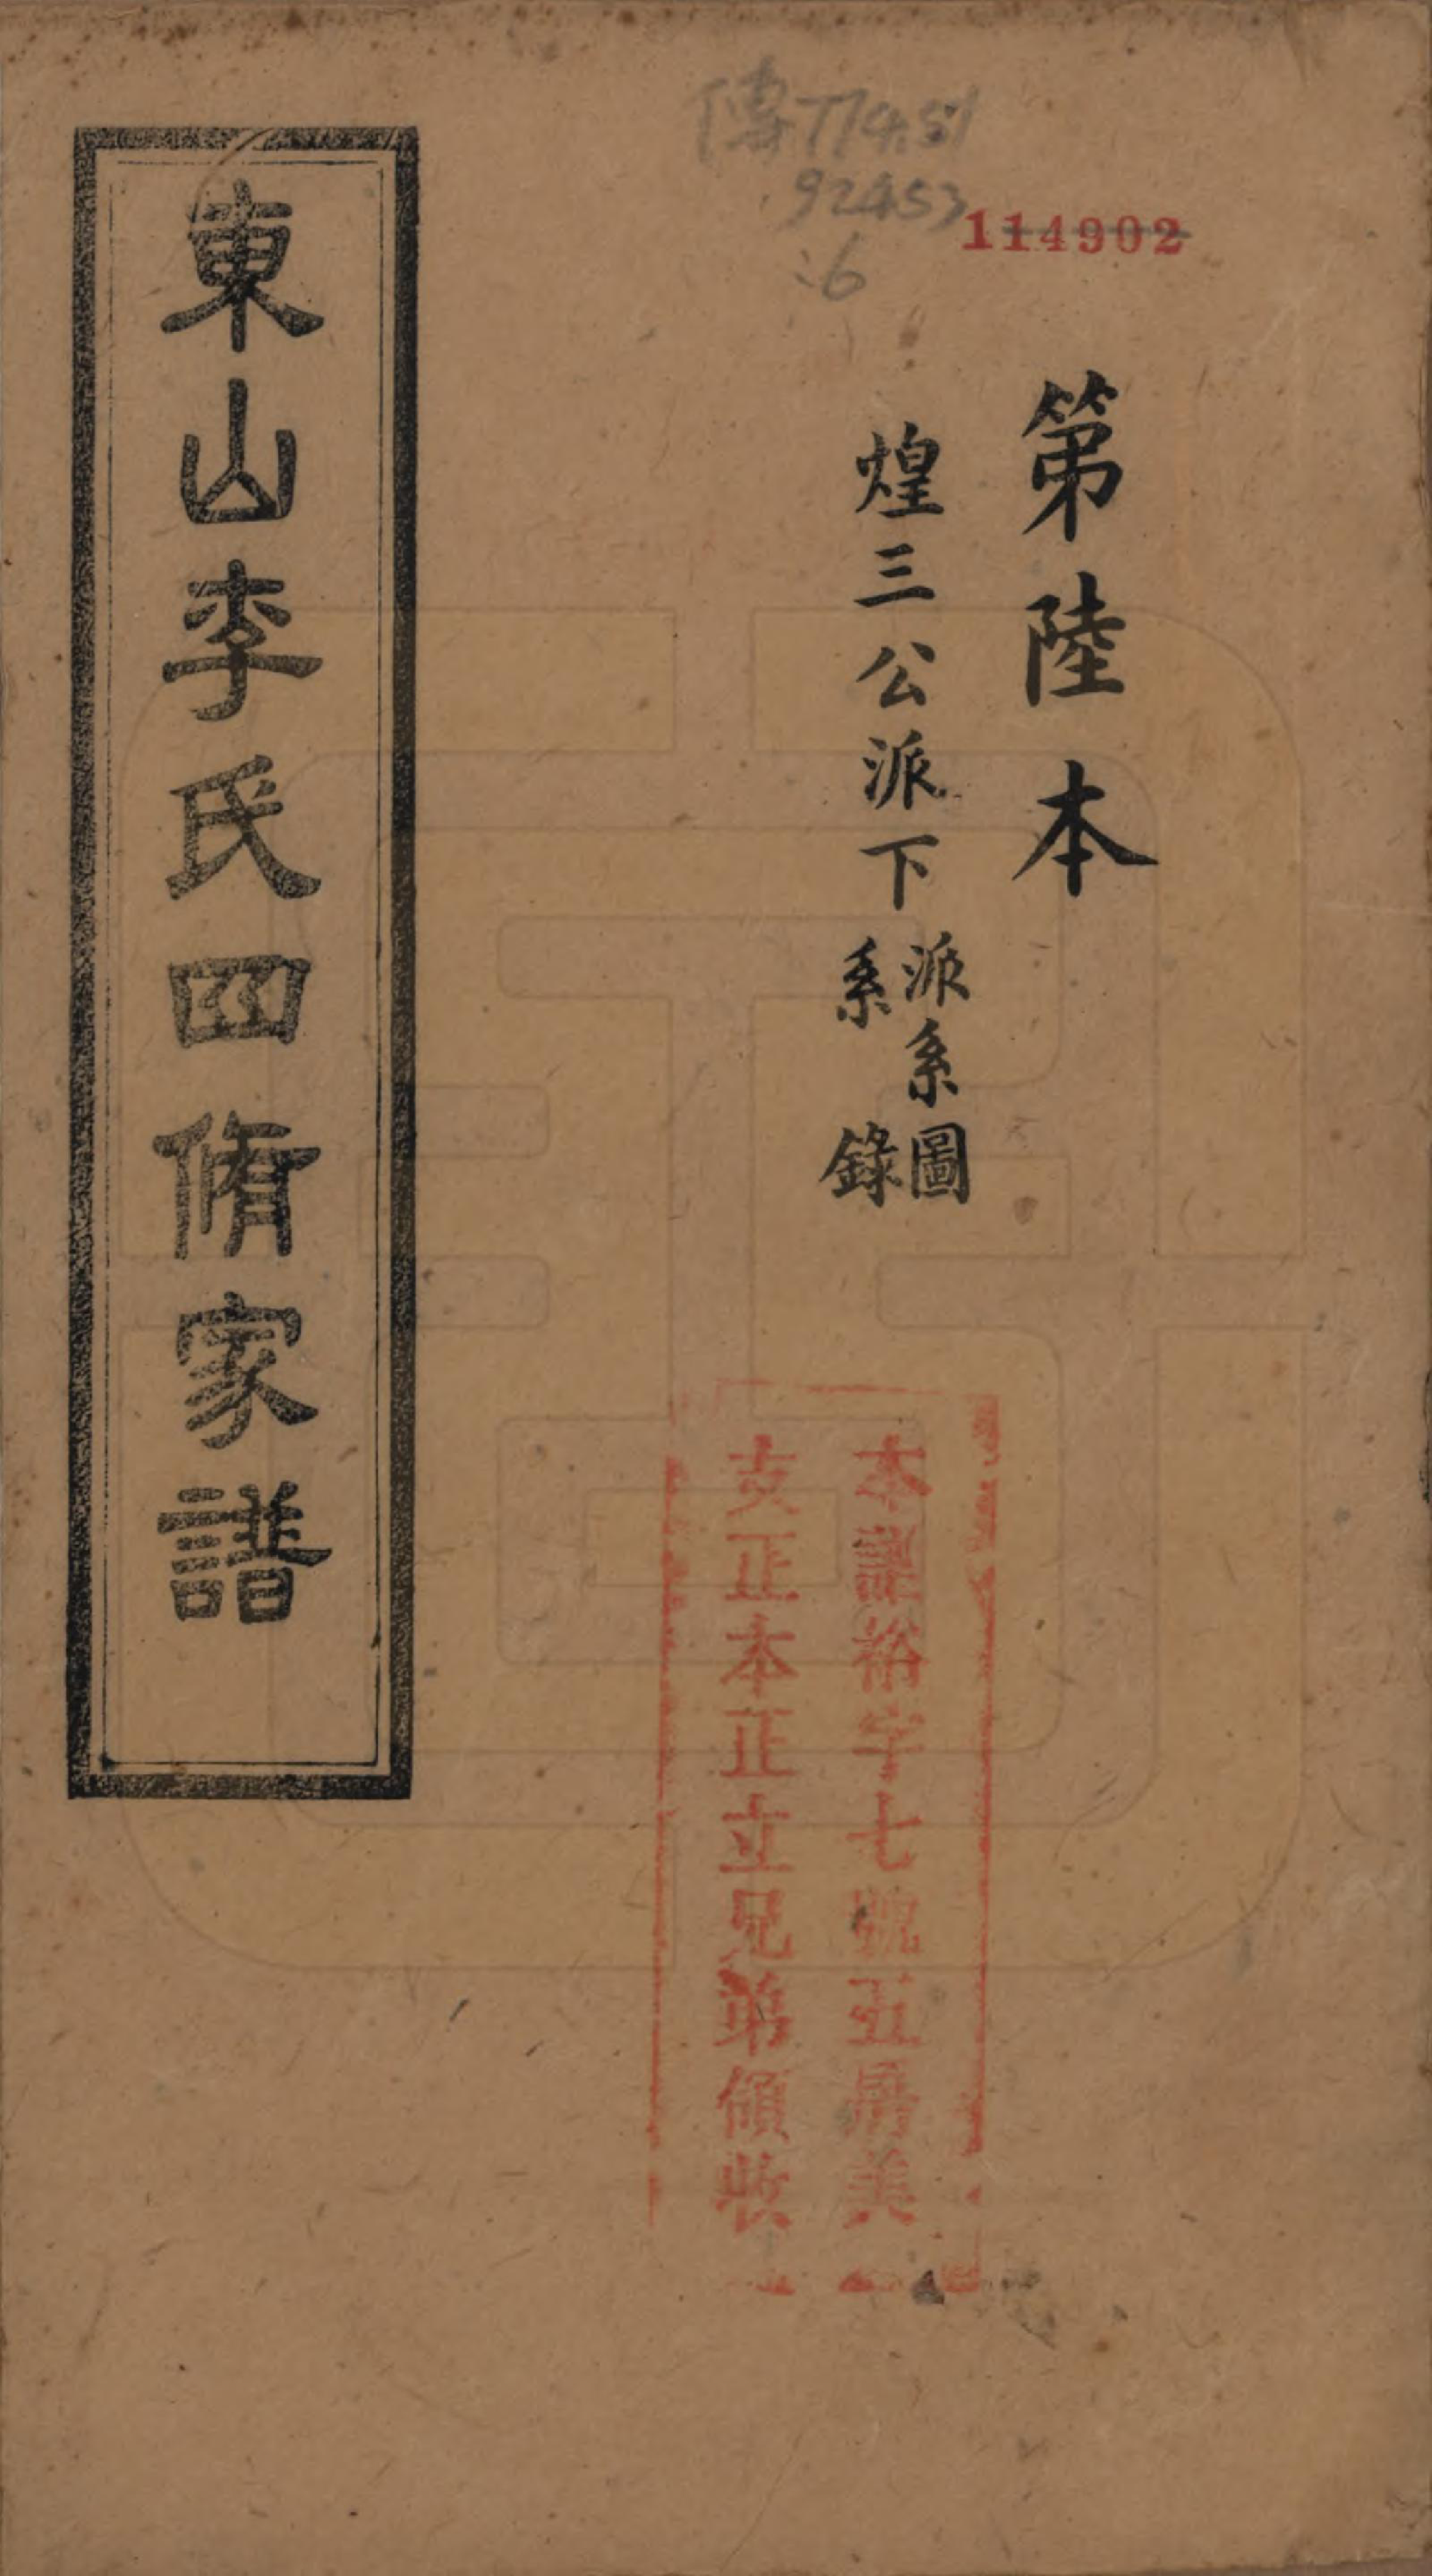 傳774.51
92453
:6
114902
第陸本
煌三公派下
派系圖
系錄
本譜裕字七號五房美
支正本正立兄弟領收
東山李氏四脩家譜